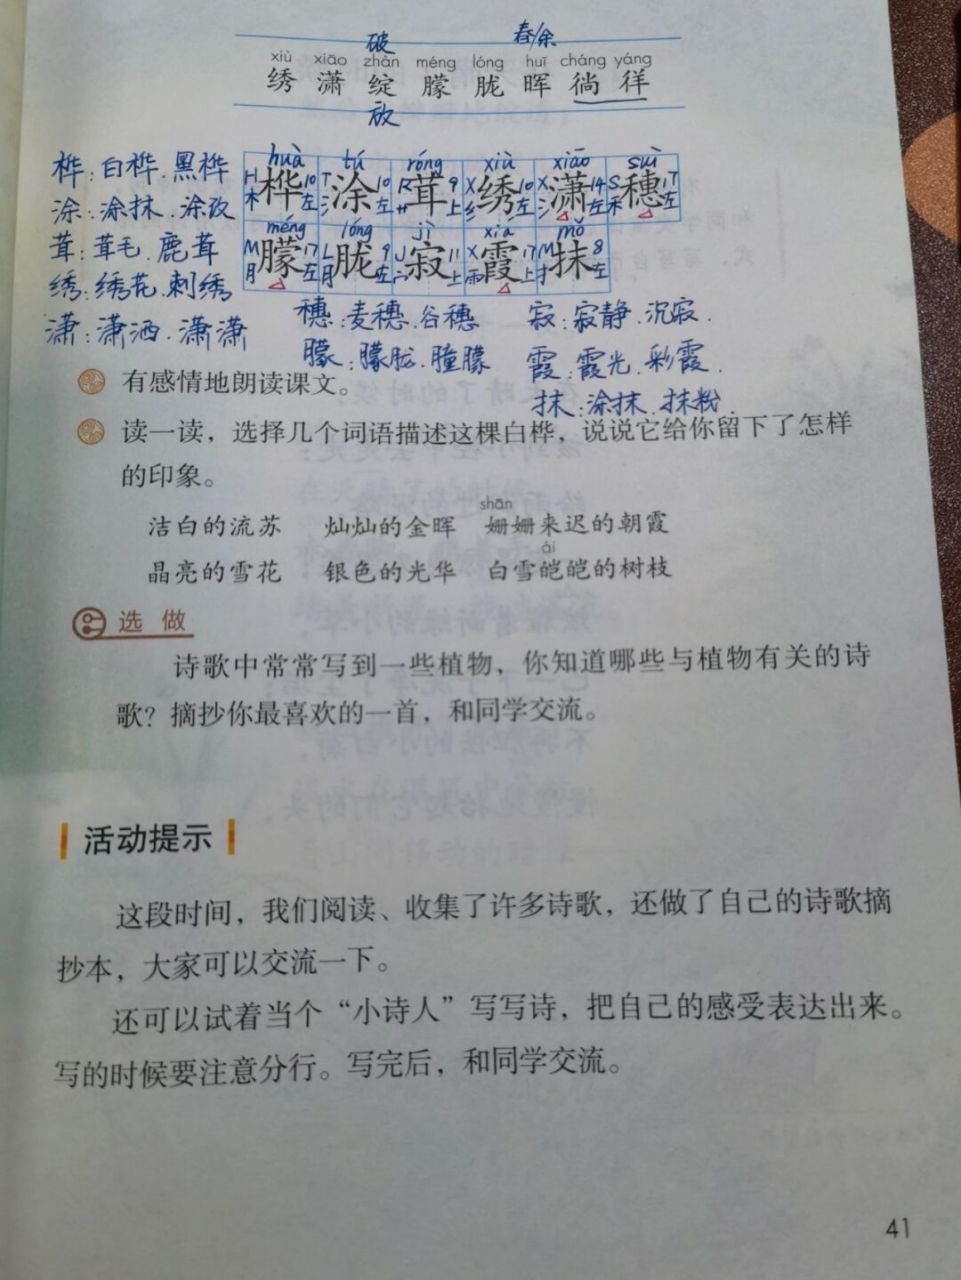 破 春/余
xiù xiāo zhàn méng lóng huī cháng yáng
绣 潇 绽 朦 胧 晖 徜 徉
放
桦:白桦.黑桦
涂:涂抹.涂改
茸:茸毛.鹿茸
绣:绣花.刺绣
潇:潇洒.潇潇
huà tú róng xiù xiāo suì
H木桦10左 T氵涂10左 R艹茸9上 X纟绣10左 X氵潇14左 S禾穗17左
méng lóng jì xiá mǒ
M月朦17左 L月胧9左 J宀寂11上 X雨霞17上 M扌抹8左
穗:麦穗.谷穗 寂:寂静.沉寂.
朦:朦胧.瞳朦 霞:霞光.彩霞.
抹:涂抹.抹粉.
有感情地朗读课文。
读一读,选择几个词语描述这棵白桦,说说它给你留下了怎样
的印象。
shān
洁白的流苏 灿灿的金晖 姗姗来迟的朝霞
ái
晶亮的雪花 银色的光华 白雪皑皑的树枝
选做
诗歌中常常写到一些植物,你知道哪些与植物有关的诗
歌?摘抄你最喜欢的一首,和同学交流。
活动提示
这段时间,我们阅读、收集了许多诗歌,还做了自己的诗歌摘
抄本,大家可以交流一下。
还可以试着当个“小诗人”写写诗,把自己的感受表达出来。
写的时候要注意分行。写完后,和同学交流。
41